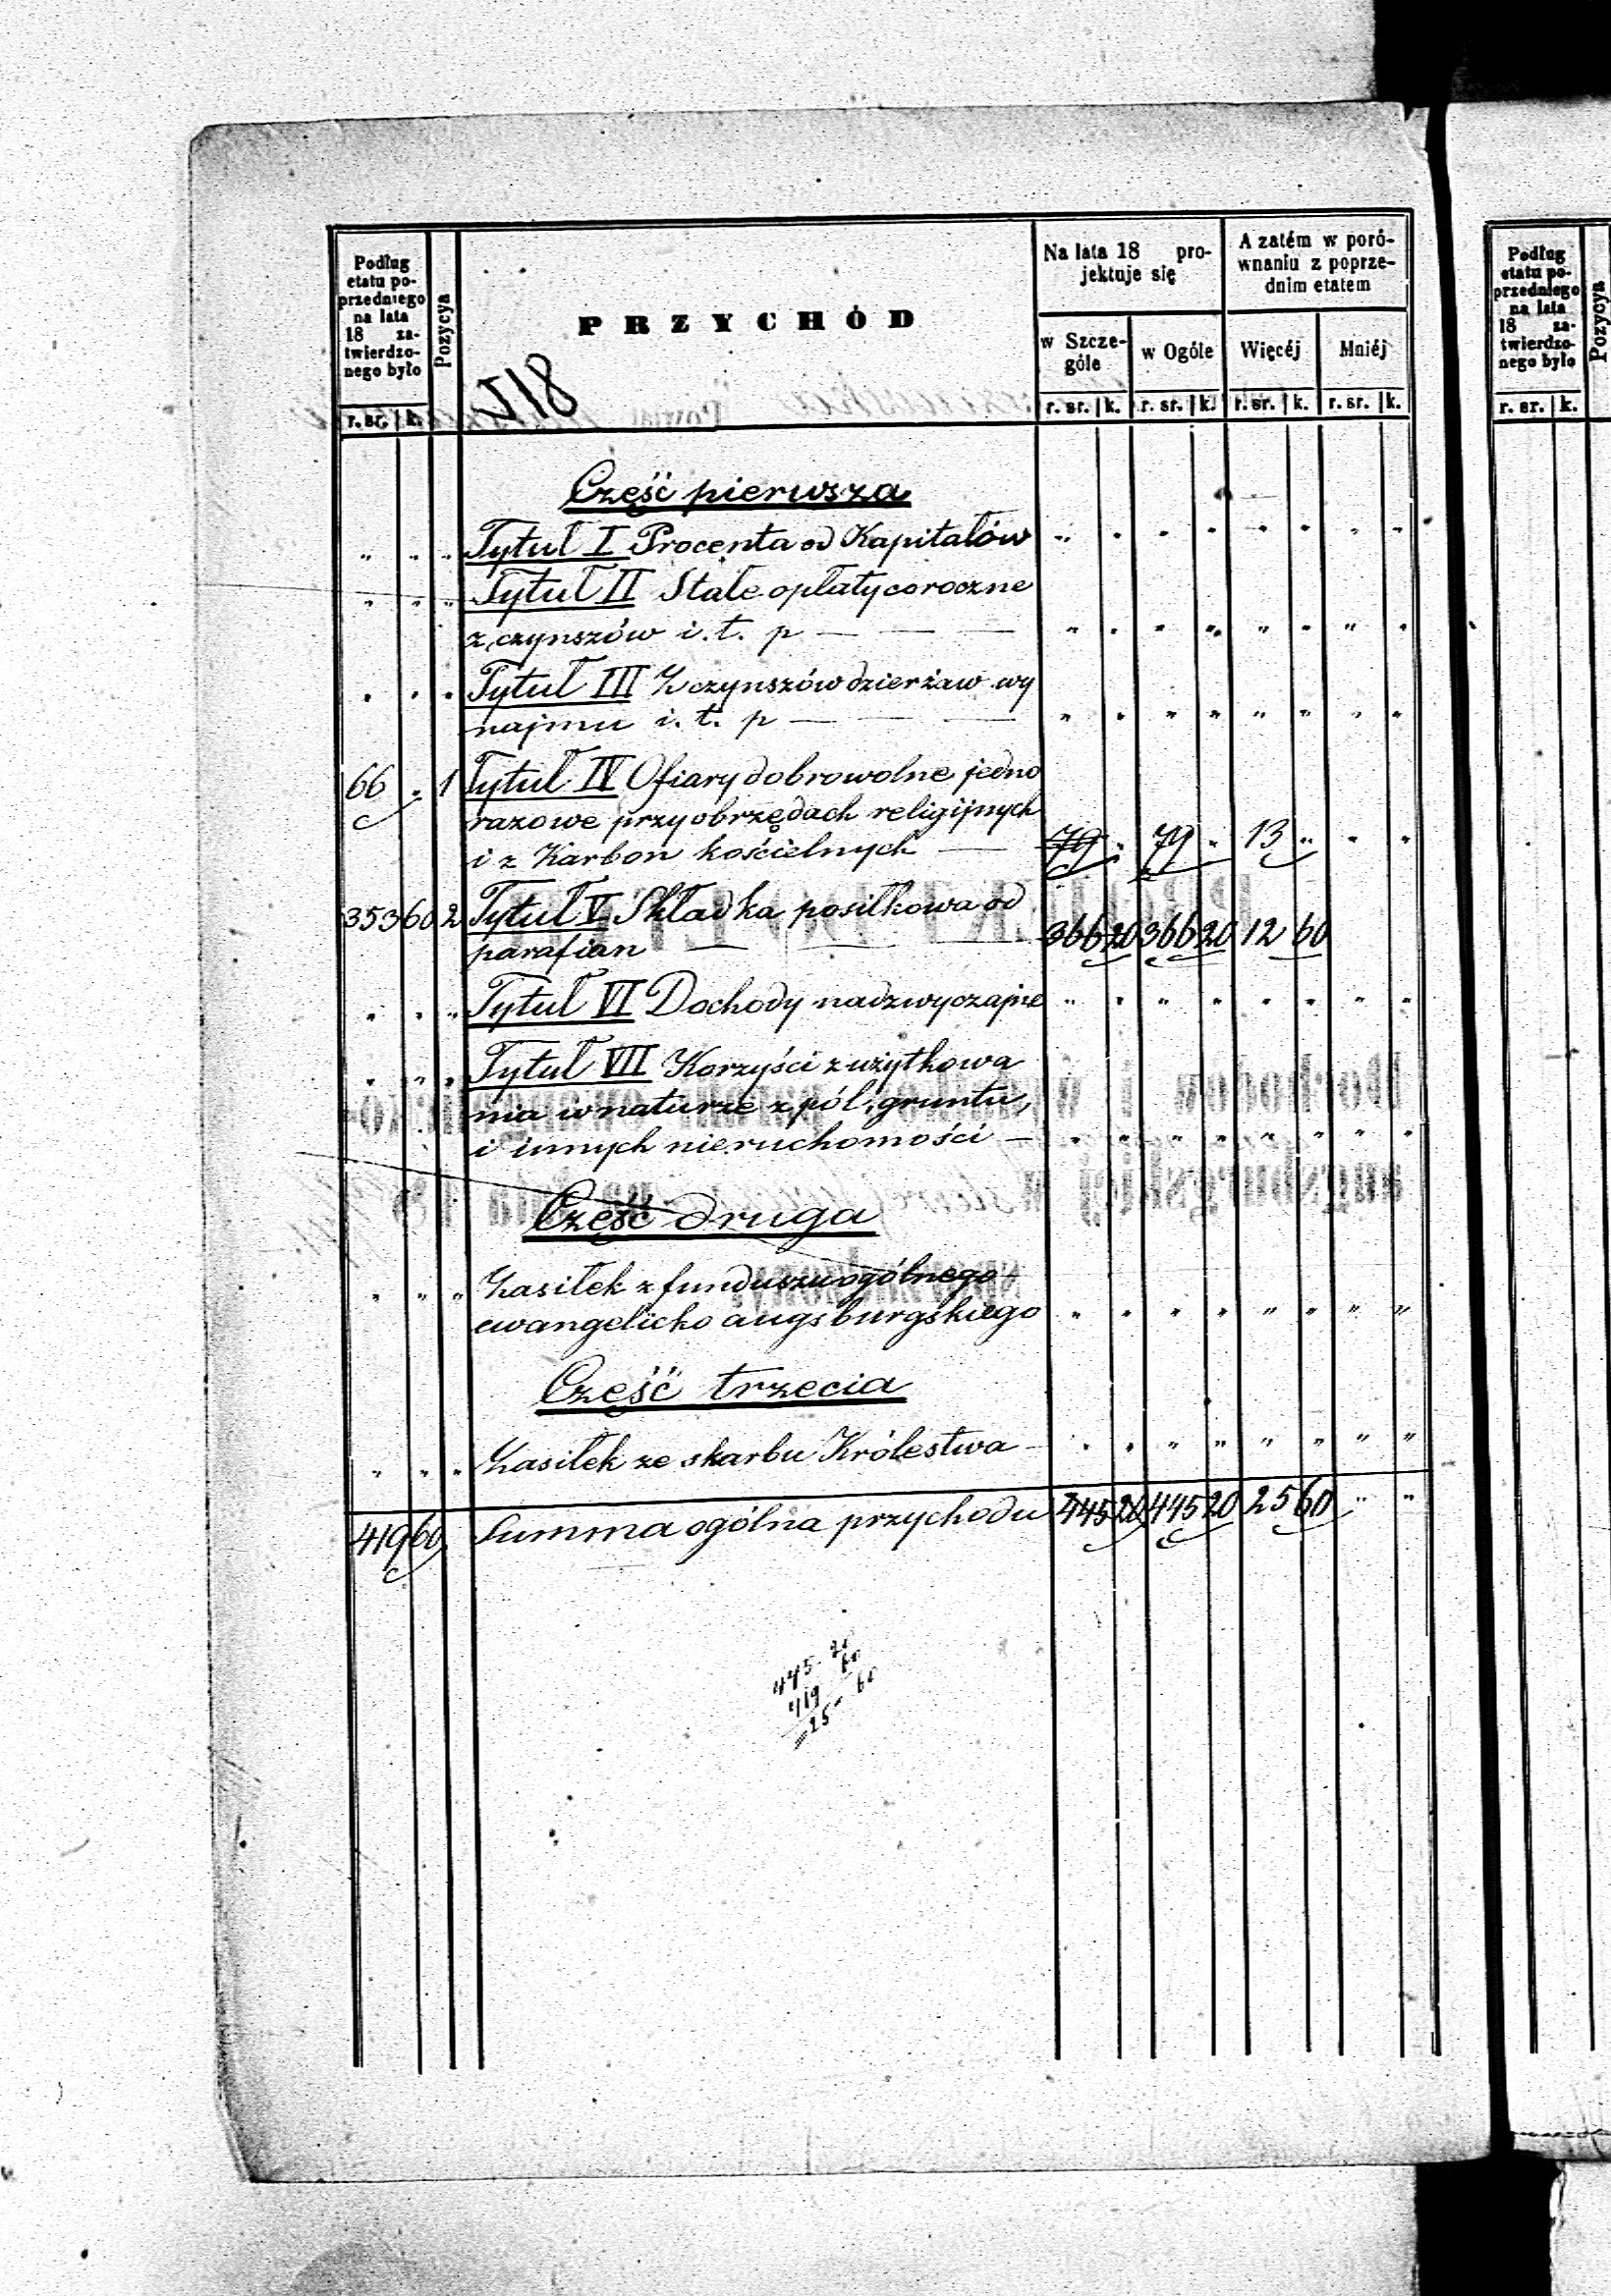 Podług etatu poprzedniego na lata 18 zatwierdzonego było
Pozycya
PRZYCHÓD
Na lata 18 projektuje się
A zatém w porównaniu z poprzednim etatem
w Szczególe
w Ogóle
Więcéj
Mniéj
r. sr. k.
r. sr. k. r. sr. k. r. sr. k. r. sr. k.
Część pierwsza
" " " Tytuł I Procenta od Kapitałów " " " " " " " "
" " " Tytuł II Stałe opłaty coroczne
z czynszów i. t. p — — — " " " " " " " "
" " " Tytuł III Z czynszów dzierżaw wy
najmu i. t. p — — — " " " " " " " "
66 " 1 Tytuł IV Ofiary dobrowolne jedno
razowe przy obrzędach religijnych
i z Karbon kościelnych — 79 " 79 " 13 " " "
353 60 2 Tytuł V Składka posiłkowa od
parafian — — — 366 20 366 20 12 60
" " " Tytuł VI Dochody nadzwyczajne " " " " " " " "
" " " Tytuł VII Korzyści z użytkowa
nia w naturze z pól, gruntu,
i innych nieruchomości — " " " " " " " "
Część druga
" " " Zasiłek z funduszu ogólnego
ewangelicko augsburgskiego " " " " " " " "
Część trzecia
" " " Zasiłek ze skarbu Królestwa — " " " " " " " "
419 60 Summa ogólna przychodu 445 20 445 20 25 60 " "
445 - 20
419 60
25 - 60
Podług etatu poprzedniego na lata 18 zatwierdzonego było
Pozycya
r. sr. k.